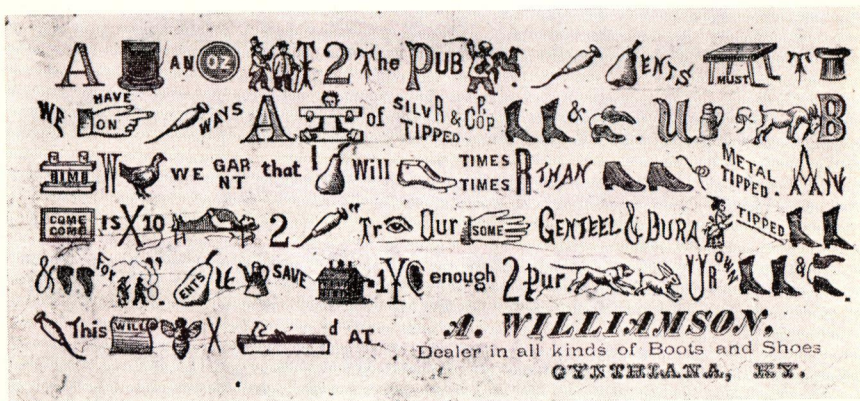 A AN OZ 2 The PUB. ENTS MUST T
WE HAVE ON WAYS A of SILVR & COPP. TIPPED & U B
HIMB W WE GAR NT that I Will TIMES TIMES R THAN METAL TIPPED. AN
COME COME IS X 10 2 "Tr Our SOME GENTEEL & DURA TIPPED
& FOR ". ENTS U SAVE 1 Y enough 2 Pur UR OWN &.
This WILL X d AT A. WILLIAMSON.
Dealer in all kinds of Boots and Shoes
CYNTHIANA, KY.